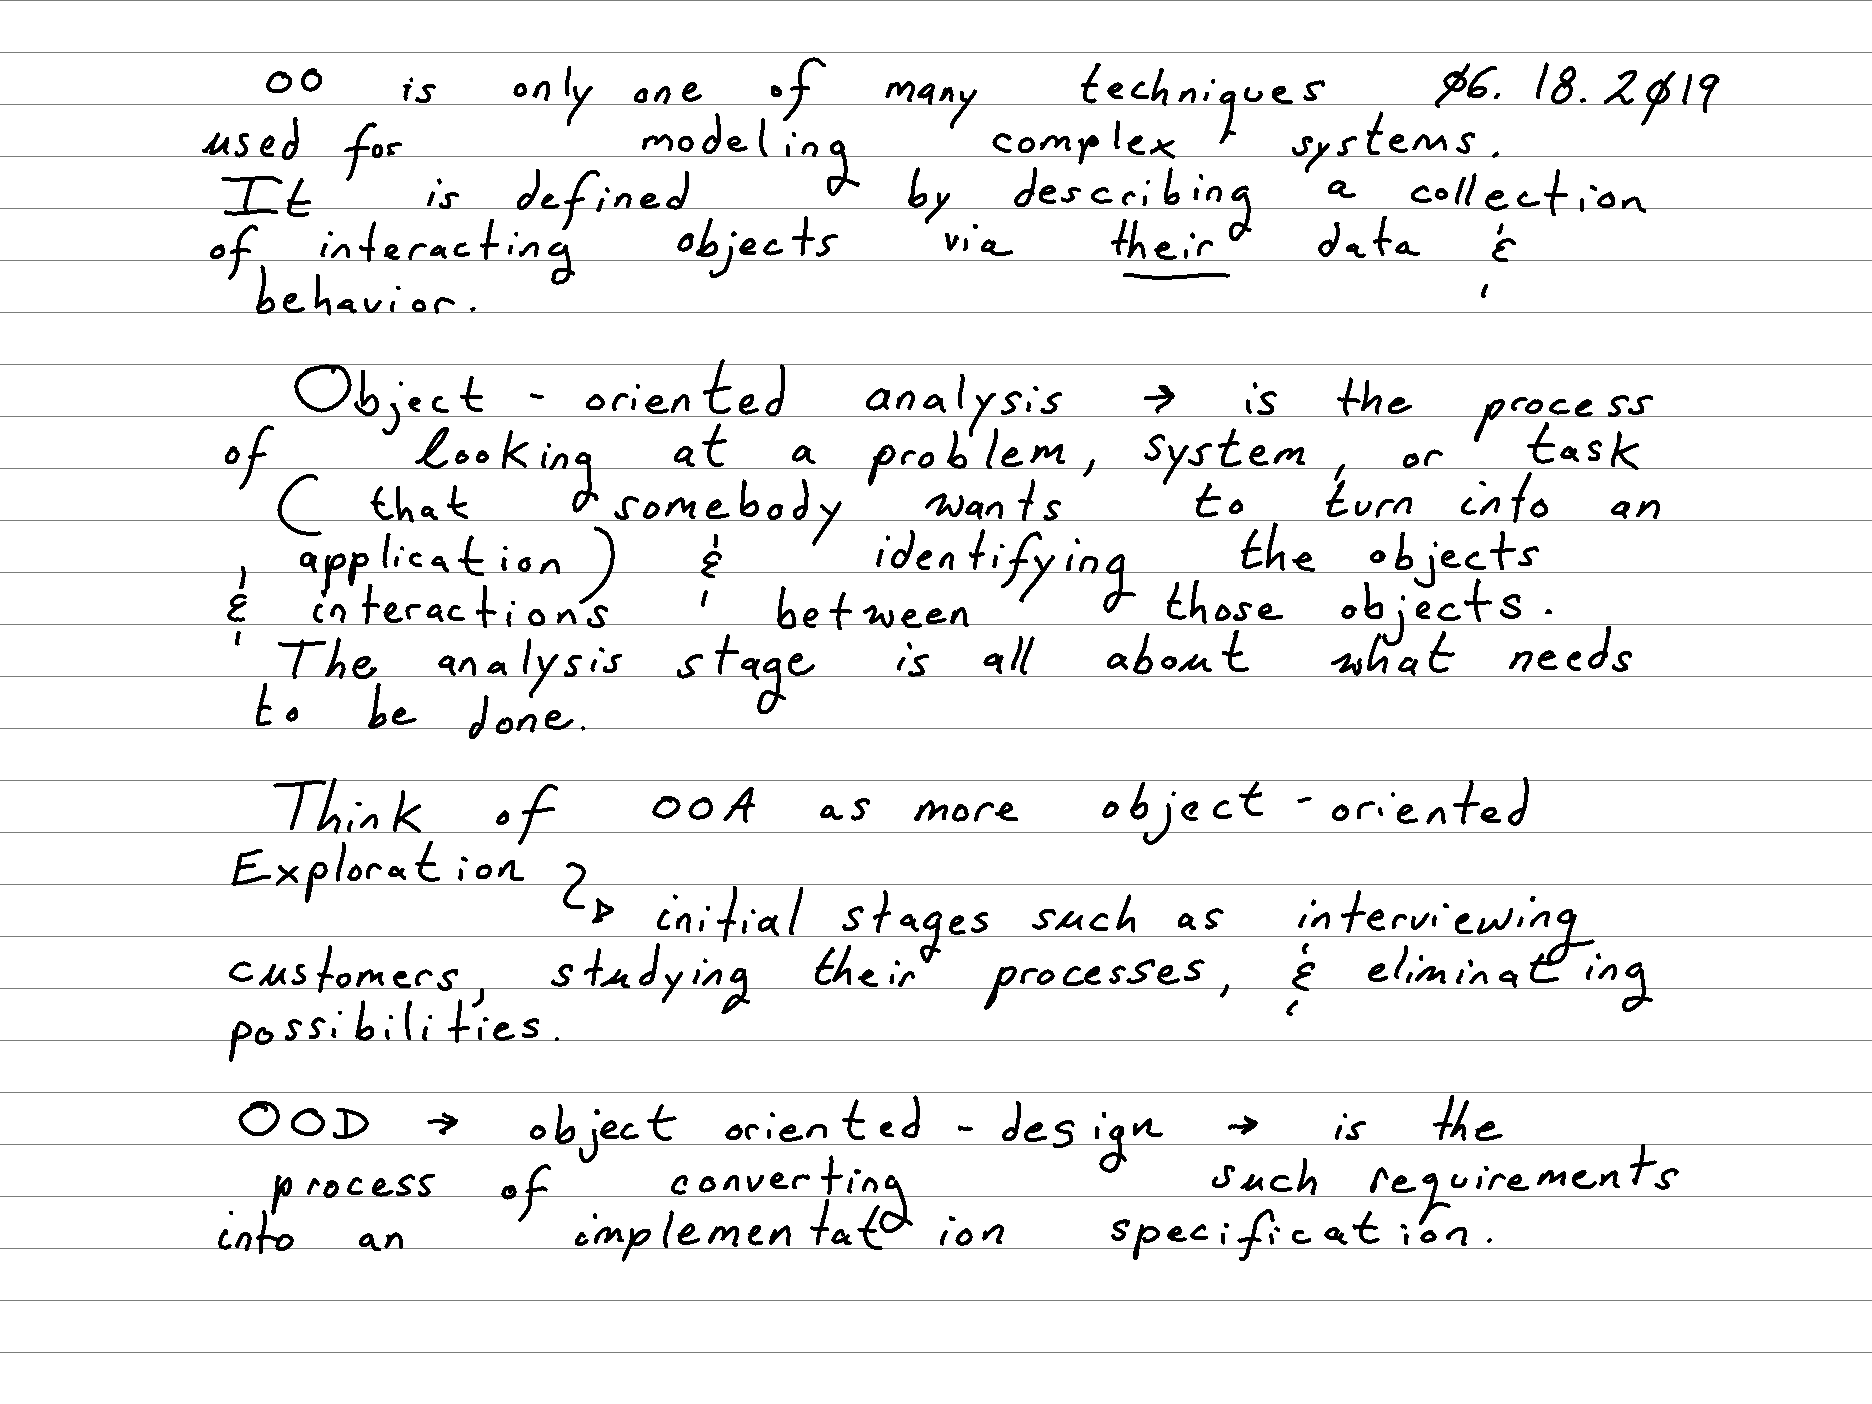 OO is only one of many techniques 06.18.2019
used for modeling complex systems.
It is defined by describing a collection
of interacting objects via their data &
behavior.
Object - oriented analysis → is the process
of looking at a problem, system, or task
( that somebody wants to turn into an
application) & identifying the objects
& interactions between those objects.
The analysis stage is all about what needs
to be done.
Think of OOA as more object - oriented
Exploration
initial stages such as interviewing
customers, studying their processes, & eliminating
possibilities.
OOD → object oriented - design → is the
process of converting such requirements
into an implementation specification.